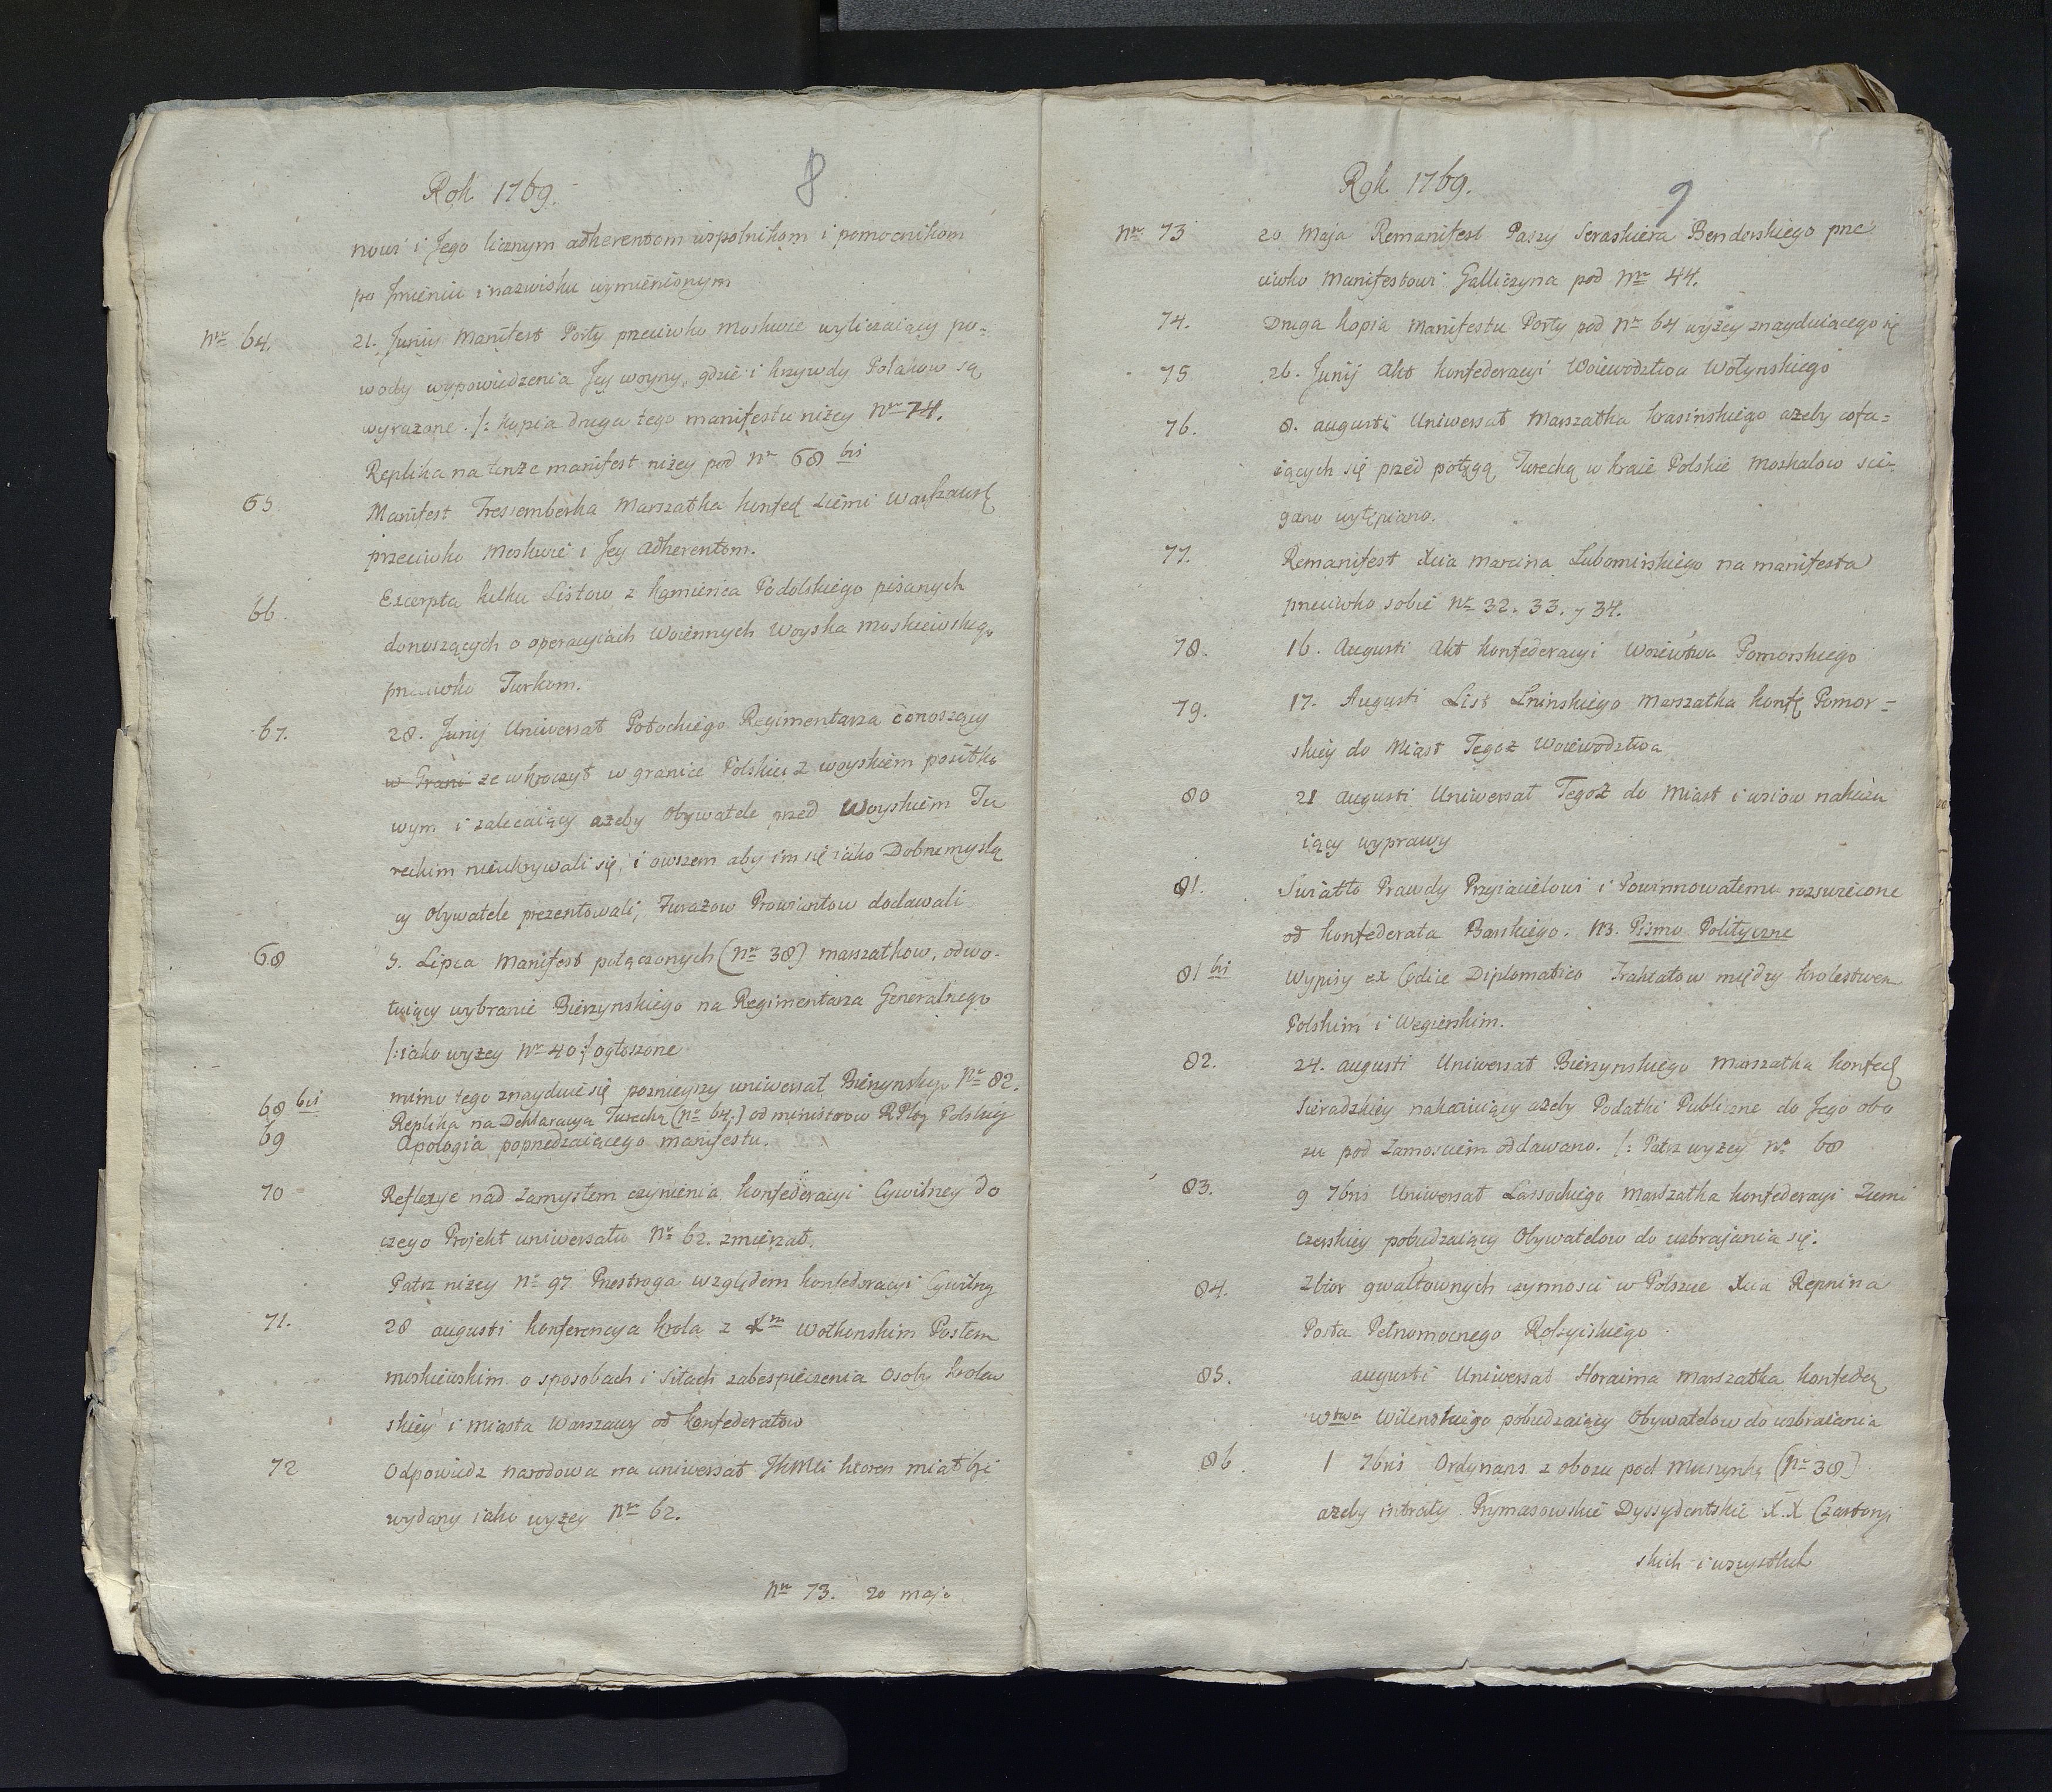 Rok 1769.
8
nowi i Jego licznym adherentom wspolnikom i pomocnikom
po Jmieniu i nazwisku wymienionym
Nr 64. 21. Junij Manifest Porty przeciwko Moskwie wyliczaiący po=
wody wypowiedzenia Jey woyny, gdzie i krzywdy Polakow są
wyrażone. /: kopia druga tego manifestu niżey Nr 74.
Replika na tenże manifest niżey pod Nr 68 bis
65 Manifest Tressemberka Marszałka konfed Ziemi Warszawsk
przeciwko Moskwie i Jey Adherentom.
66. Excerpta kilku Listow z Kamieńca Podolskiego pisanych
donoszących o operacyiach Woiennych Woyska moskiewskiego
przeciwko Turkom.
67. 28. Junij Uniwersał Potockiego Regimentarza donoszący
w Grani ze wkroczył w granice Polskie z woyskiem posiłko
wym i zalecaiący ażeby Obywatele przed Woyskiem Tu
reckim nieukrywali się, i owszem aby im się iako Dobrze myslą
cy Obywatele prezentowali, Furażow Prowiantow dodawali
68 5. Lipca Manifest połączonych (Nr 38) marszałkow, odwo-
łuiący wybranie Bierzynskiego na Regimentarza Generalnego
/: iako wyżey Nr 40 :/ ogłoszone
mimo tego znayduie się poznieyszy uniwersał Bierzynskgo Nr 82.
68 bis Replika na Deklaracyą Turecką (Nr 64.) od ministrow RPltey Polskiey
69 Apologia poprzedzaiącego manifestu.
70 Reflexye nad zamysłem czynienia konfederacyi Cywilney do
czego Projekt uniwersału Nr 62. zmierzał.
Patrz niżey Nr 97 Przestroga względem konfederacyi Cywilney
71. 28 augusti konferencya krola z Xm Wołkonskim Posłem
moskiewskim o sposobach i siłach zabespieczenia Osoby krolew
skiey i miasta Warszawy od konfederatow
72 Odpowiedz narodowa na uniwersał JKMci ktoren miał być
wydany iako wyżey Nr 62.
Nr 73. 20 maja
Rok 1769.
9
Nr 73 20 Maja Remanifest Paszy Seraskiera Benderskiego prze
ciwko Manifestowi Galliczyna pod Nr 44.
74. Druga kopia Manifestu Porty pod Nr 64 wyżey znayduiącego się
75. 26. Junij Akt konfederacyi Woiewodztwa Wołynskiego
76. 8. augusti Uniwersał Marszałka Krasinskiego ażeby cofa=
iących się przed potęgą Turecką w kraie Polskie Moskalow sci-
gano wytępiano.
77. Remanifest Xcia Marcina Lubomirskiego na manifesta
przeciwko sobie Nr 32. 33. y 34.
78. 16. Augusti Akt konfederacyi Woiewtwa Pomorskiego
79. 17. Augusti List Lninskiego Marszałka konfę Pomor-
skiey do Miast Tegoż Woiewodztwa
80 21 augusti Uniwersał Tegoż do Miast i wsiow nakazu
iący wyprawy
81. Swiatło Prawdy Przyiacielowi i Powinnowatemu rozswiecone
od konfederata Barskiego. NB. Pismo Polityczne
81 bis Wypisy ex Codice Diplomatico Traktatow między krolestwem
Polskim i Węgierskim.
82. 24. augusti Uniwersał Bierzynskiego Marszałka konfed
Sieradzkiey nakazuiący ażeby Podatki Publiczne do Jego obo
zu pod Zamosciem oddawano. /: Patrz wyżey Nr 68
83. 9 7bris Uniwersał Lassockiego Marszałka konfederacyi Ziemi
Czerskiey pobudzaiący Obywatelow do uzbrajania się.
84. Zbior gwałtownych czynnosci w Polszcze Xcia Repnina
Posła Pełnomocnego Rossyiskiego
85. augusti Uniwersał Horaima Marszałka konfeder
Wtwa Wilenskiego pobudzaiący Obywatelow do uzbraiania
86. 1 7bris Ordynans z obozu pod Muszynką (Nr 38)
ażeby intraty Prymasowskie Dyssydentskie X.X Czartory
skich i wszystkich